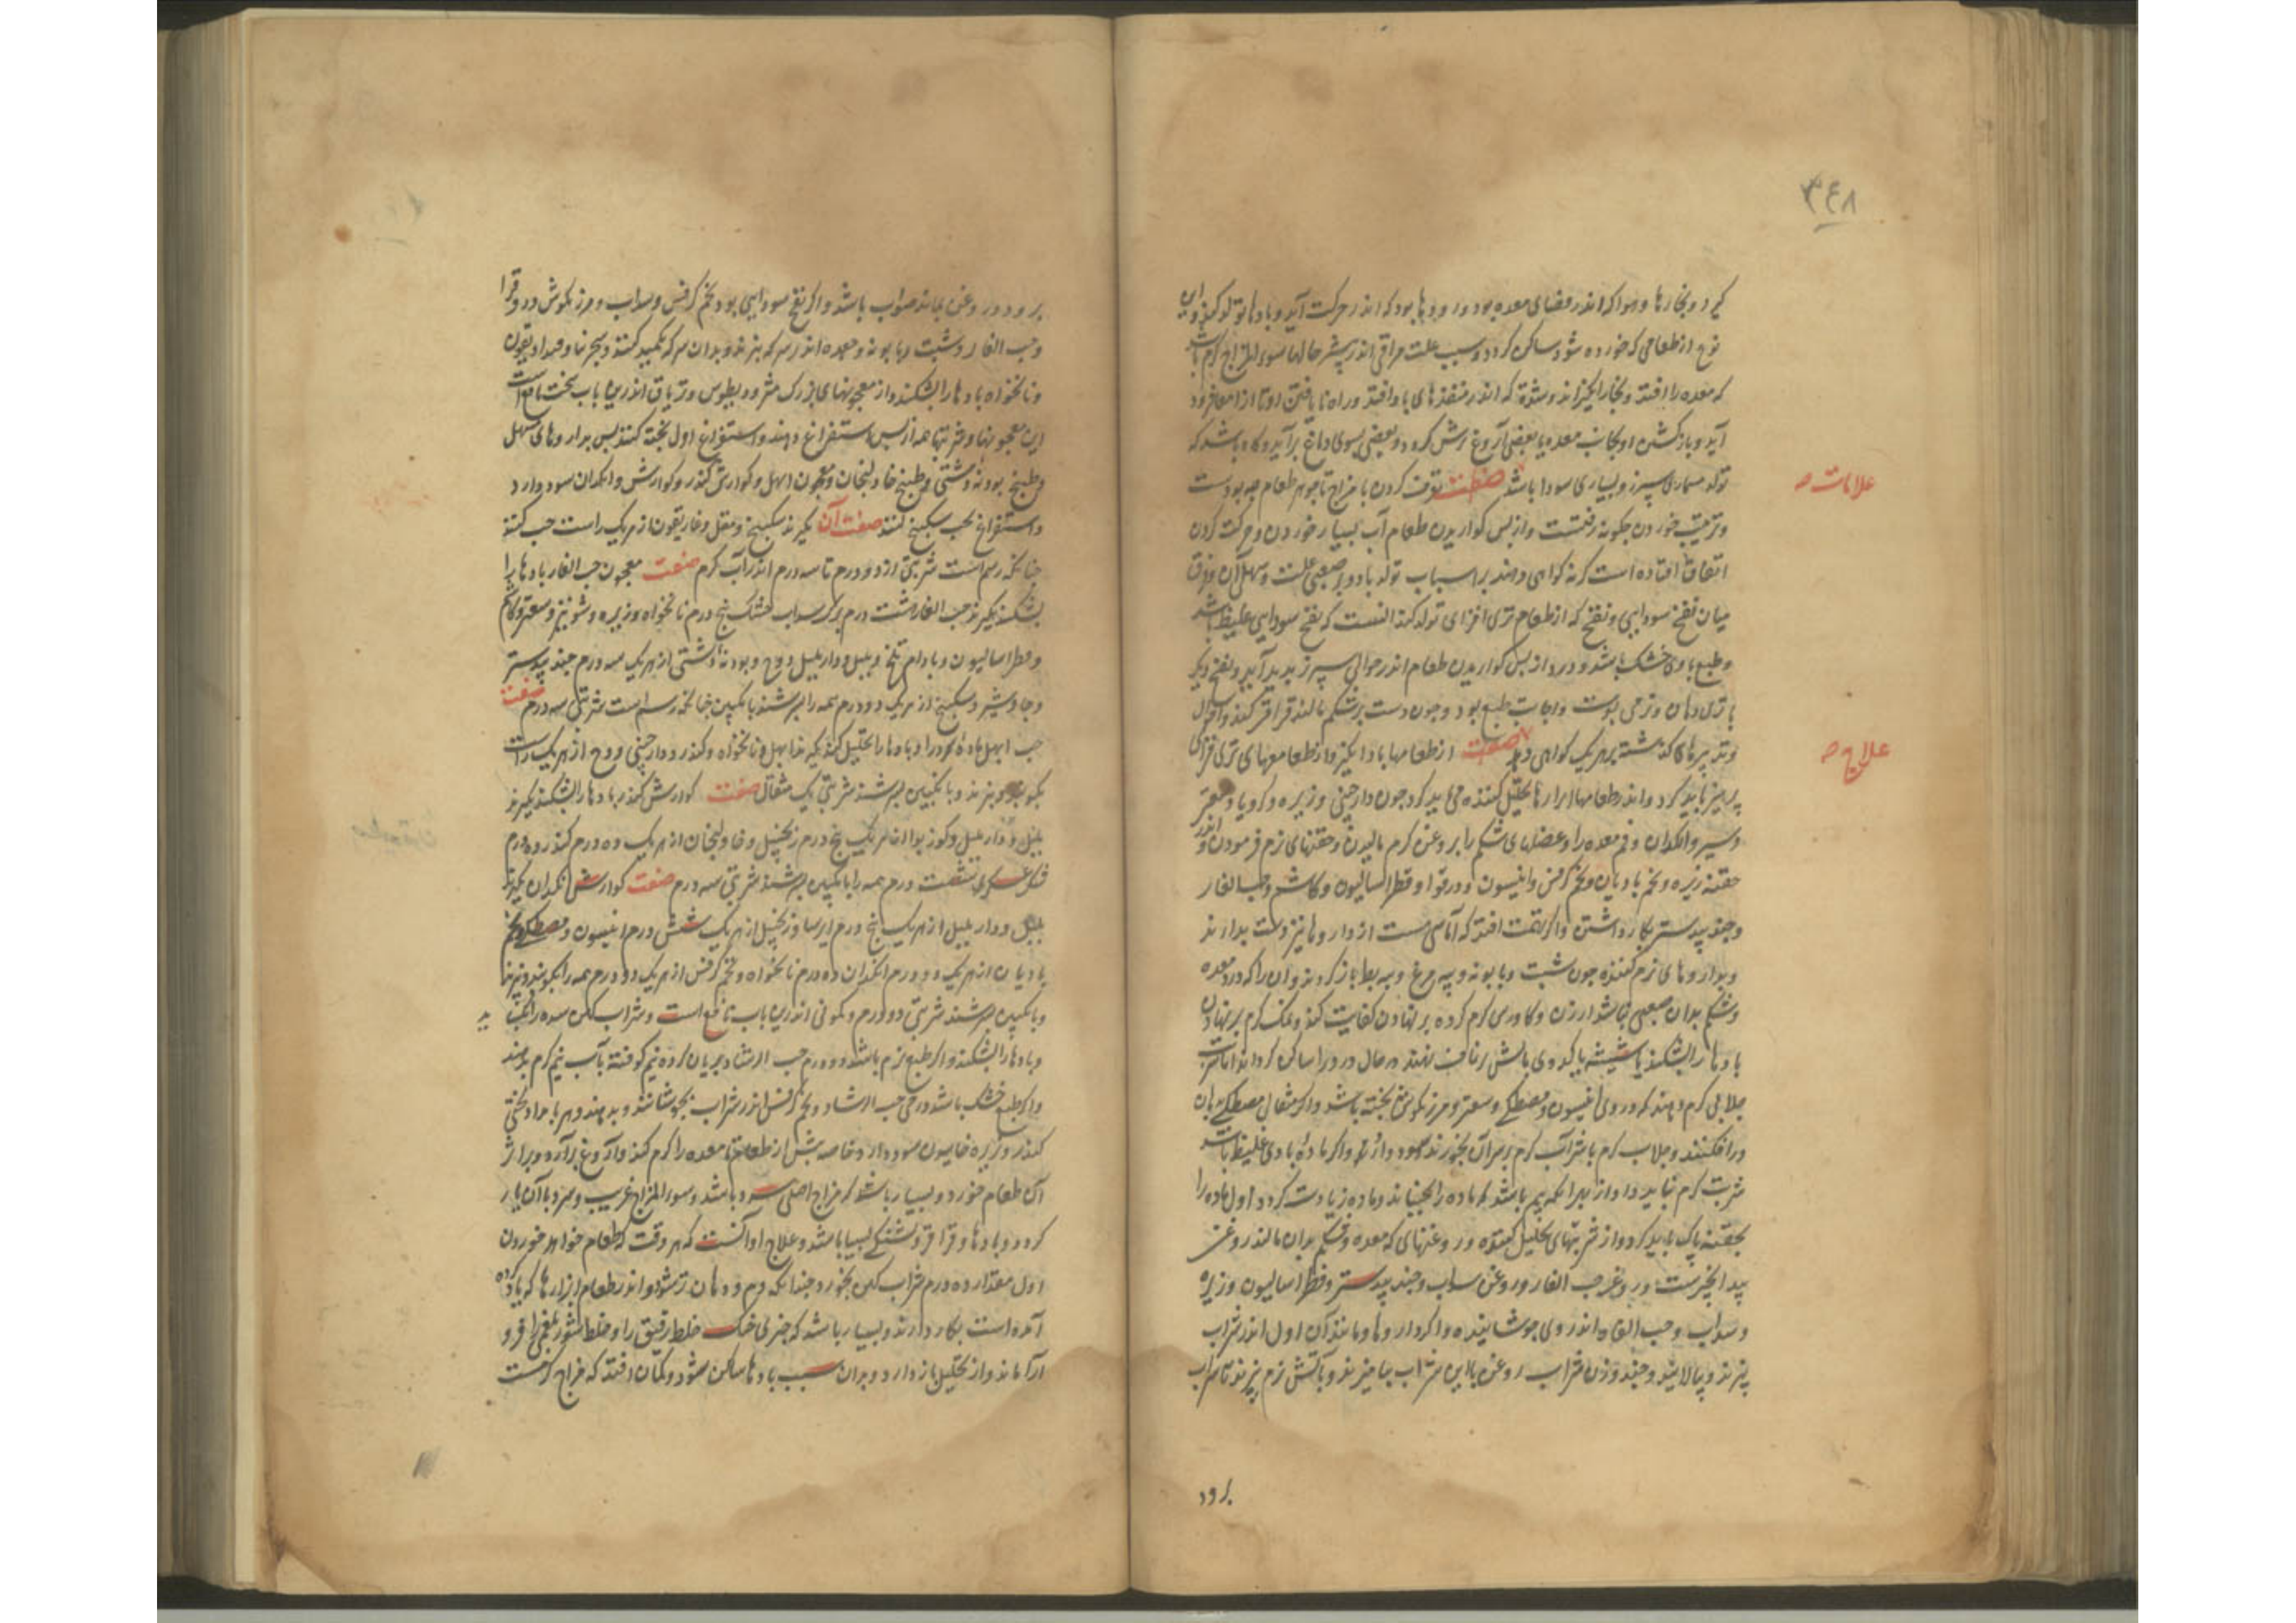 ۳۴۸
کیرد و بخارها و هوا که اندر فضای معده بود و رودها بود که اندر حرکت آید و بادها تولد کند و این
نوع از طعامی که خورده شود ساکن کردد و سبب علت مراقی اندر بیشتر حالها سوء المزاج کرم باشد
که معده را افتد و بخار انکیزاند و سده که اندر منفذهای با او افتد و راه نایافتن او تا از امعا فرود
آید و باز کشتن او بجانب معده تا بعضی آروغ ترش کردد و بعضی بسوی دماغ برآید و کاه باشد که
تولد بیماری سپرز و بسیاری سودا باشد صفت توقف کردن با مزاج تا جوهر طعام چه بودست
علامات
و ترتیب خوردن چکونه رفتست و از پس کواریدن طعام آب بسیار خوردن و حرکت کردن
اتفاق افتاده است که نه کواهی دهند بر اسباب تولد باد و بر صعبی علت و سهلی آن و فرق
میان نفخ سودایی و نفخ که از طعام تری افزای تولد کند آنست که نفخ سودایی غلیظ باشد
و طبع با وی خشک باشد و درد از پس کواریدن طعام اندر حوالی سپرز پدید آید و نفخ دیکر
با تری دهان و نرمی پوست و اجابت طبع بود و چون دست بر شکم مالند قراقر کند و احوال
و تدبیرهای کذشته بر هر یک کواهی دهد صفت از طعامها باد انکیز و از طعامهای تری فزای
علاج
پرهیز باید کرد و اندر طعامها ابزارها تحلیل کننده می باید کرد چون دارچینی و زیره و کرویا و صعتر
و سیر و انکدان و فم معده را و عضلهای شکم را بروغن کرم مالیدن و حقنهای نرم فرمودن و اندر
حقنه زیره و تخم بادیان و تخم کرفس و انیسون و دوقوا و فطراسالیون و کاشم و حب الغار
و جند بیدستر بکار داشتن و اکر تهمت افتد که آماسی هست از داروها تیز دست بدارند
و بداروهای نرم کننده چون شبت و بابونه و پیه مرغ و پیه بط باز کردند و آن را که درد معده
و شکم بدان صعبی نباشد ارزن و کاورس کرم کرده بر نهادن کفایت کند و نمک کرم بر نهادن
بادها را بشکند یا شیشه یا کدوی بآتش بر ناف نهند در حال درد را ساکن کرداند اما شربت
جلابی کرم دهند که در وی انیسون و مصطکی و صعتر و مرزنکوش پخته باشد و اکر مثقال مصطکی بدان
درافکنند و جلاب کرم یا شراب کرم بر سر آن بخورند سود دارد و اکر ماده بادی غلیظ باشد
شربت کرم نباید داد از بهر آنکه بیم باشد که ماده را بجنباند و ماده زیادت کردد اول ماده را
بحقنه پاک باید کرد و از شربتهای تحلیل کننده و روغنهای که معده و شکم بدان مالند روغن
بیدانجیرست و روغن حب الغار و روغن سداب و جند بیدستر و فطراسالیون و زیره
و سداب و حب الغار اندر وی جوشانیده و اکر داروها و مانند آن اول اندر شراب
پزند و بپالایند و چند وزن شراب روغن با این شراب بیامیزند و بآتش نرم پزند تا شراب
برود
برود و روغن بماند صواب باشد و اکر نفخ سودایی بود تخم کرفس و سداب و مرزنکوش و دوقوا
و حب الغار و شبت و بابونه و جعده اندر سرکه پزند و بدان سرکه تکمید کنند و سجزنیا و فنداديقون
و نانخواه بادها را بشکند و از معجونهای بزرک مثرودیطوس و تریاق اندرین باب سخت نافع است
این معجونها و شربتها همه از پس استفراغ دهند و استفراغ اول بحقنه کنند پس بداروهای مسهل
و طبیخ پودنه دشتی و طبیخ خاولنجان و معجون ابهل و کوارش کندر و کوارش وانکدان سود دارد
و استفراغ بحب سکبینج کنند صفت آن بکیرند سکبینج و مقل و غاریقون از هر یک راست حب کنند
چنانکه رسم است شربتی از دو درم تا سه درم اندر آب کرم صفت معجون حب الغار بادها را
بشکند بکیرند حب الغار هشت درم برک سداب خشک پنج درم نانخواه و زیره و شونیز و صعتر و کاشم
و فطراسالیون و بادام تلخ و پلپل و دارپلپل و وج و پودنه دشتی از هر یک سه درم جند بیدستر
و جاوشیر و سکبینج از هر یک دو درم همه را بسرشند بانکبین چنانکه رسم است شربتی سه درم صفت
حب ابهل باده کرده و بادها را تحلیل کند بکیرند ابهل و نانخواه و کندر و دارچینی و وج از هر یک راست
بکوبند و بپزند و بانکبین بسرشند شربتی یک مثقال صفت کوارش کندر بادها را بشکند بکیرند
پلپل و دارپلپل و کوزبوا از هر یک پنج درم زنجبیل و خاولنجان از هر یک ده درم کندر ده درم
شکر عسکری شصت درم همه را بانکبین بسرشند شربتی سه درم صفت کوارش انکدان بکیرند
پلپل و دارپلپل از هر یک پنج درم ایرسا و زنجبیل از هر یک شش درم انیسون و مصطکی و تخم
بادیان از هر یک دو درم انکدان ده درم نانخواه و تخم کرفس از هر یک دو درم همه را بکوبند و بپزند
و بانکبین بسرشند شربتی دو درم و کمونی اندرین باب نافع است و شراب کهن سده را بکشاید
و بادها را بشکند و اکر طبع نرم باشد دو درم حب الرشاد بریان کرده نیم کوفته بآب نیم کرم بدهند
و اکر طبع خشک باشد درمی حب الرشاد و تخم کرفس اندر شراب بجوشانند و بدهند و هر بامداد لختی
کندر و زیره خاییدن سود دارد خاصه پیش از طعام تا معده را کرم کند و آروغ برآرد و پس از
آن طعام خورد و بسیار باشد که مزاج اصلی سرد باشد و سوء المزاج غریب و سرد با آن یار
کردد و بادها و قراقر و تشنکی بسیار باشد و علاج او آنست که هر وقت که طعام خواهد خوردن
اول مقدار ده درم شراب کهن بخورد چندانکه دم و دهان تر شود و اندر طعام ابزارها که یاد کرده
آمده است بکار دارند و بسیار باشد که چیزی خنک خلط رقیق را و خلط شور بلغمی را فرو
آرد ماند و از تحلیل باز دارد و بدان سبب بادها ساکن شود و کمان افتد که مزاج کرمست